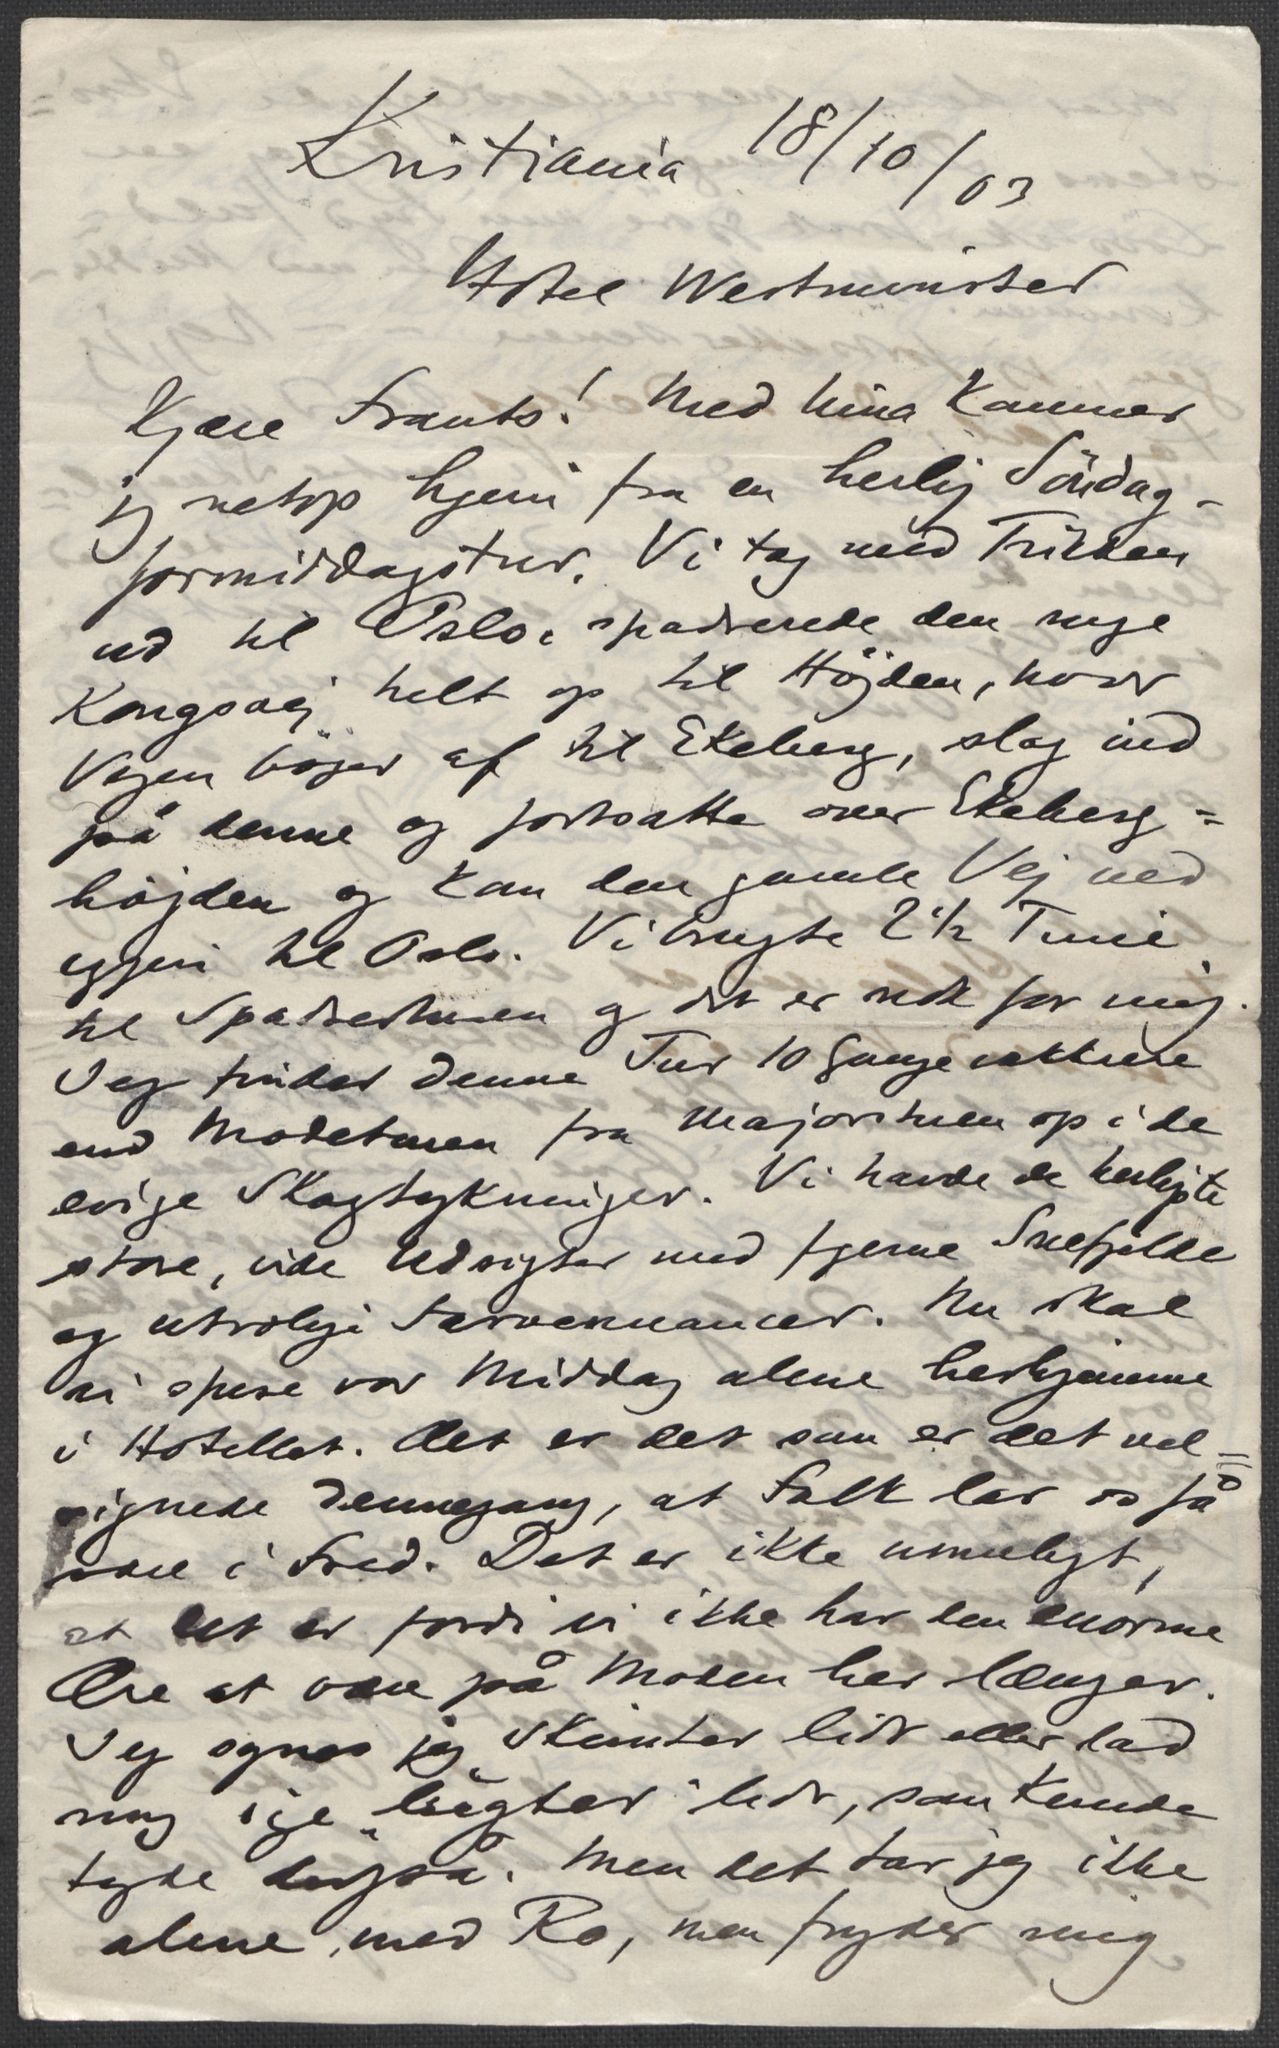 Kristiania 18/10/03
Hotel Westminster
Kjære Frants! Med Nina kommer
jeg netop hjem fra en herlig Söndag-
formiddagstur. Vi tog med Trikken
ud til Oslo, spadserede den nye
Kongsvej helt op til Höjden, hvor
Vejen böjer af til Ekeberg, slog ind
på denne og fortsatte over Ekeberg=
höjden og kom den gamle Vej ned
igjen til Oslo. Vi brugte 2½ Time
til Spadserturen og det er nok for mig.
Jeg finder denne Tur 10 Gange vakkrere
end Modeturen fra Majorstuen op i de
evige Skogtykninger. Vi havde de herligste
store, vide Udsigter med fjerne Snefjelde
og utrolige Farvenuancer. Nu skal
vi spise vor Middag alene herhjemme
i Hotellet. Det er det som er det vel=
signede dennegang, at Folk lar os få
være i Fred. Det er ikke umuligt,
at det er fordi vi ikke har den enorme
Ære at være på Moden her længer.
Jeg synes jeg skimter lidt eller lad
mig sige "lugter" lidt, som kunde
tyde derpå. Men det tar jeg ikke
alene med Ro, men fryder mig